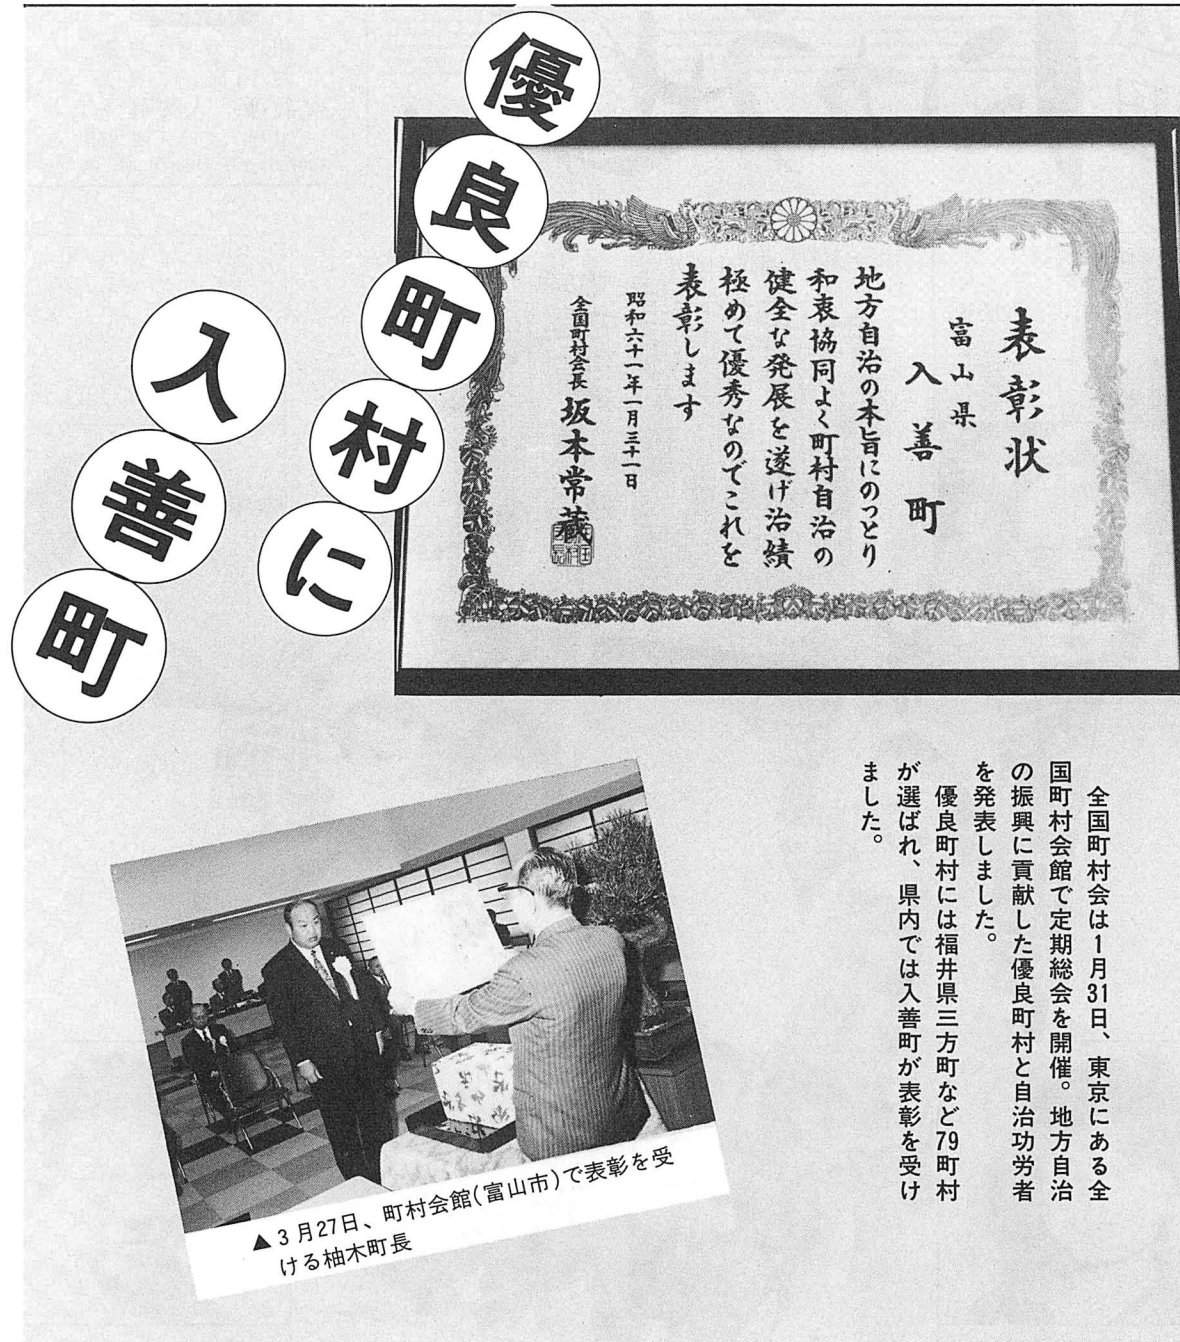 優良町村に
入善町
表彰状
富山県
入善町
地方自治の本旨にのっとり
和衷協同よく町村自治の
健全な発展を遂げ治績
極めて優秀なのでこれを
表彰します
昭和六十一年一月三十一日
全国町村会長 坂本常蔵
全国町村会は1月31日、東京にある全
国町村会館で定期総会を開催。地方自治
の振興に貢献した優良町村と自治功労者
を発表しました。
優良町村には福井県三方町など79町村
が選ばれ、県内では入善町が表彰を受け
ました。
▲3月27日、町村会館(富山市)で表彰を受
ける柚木町長